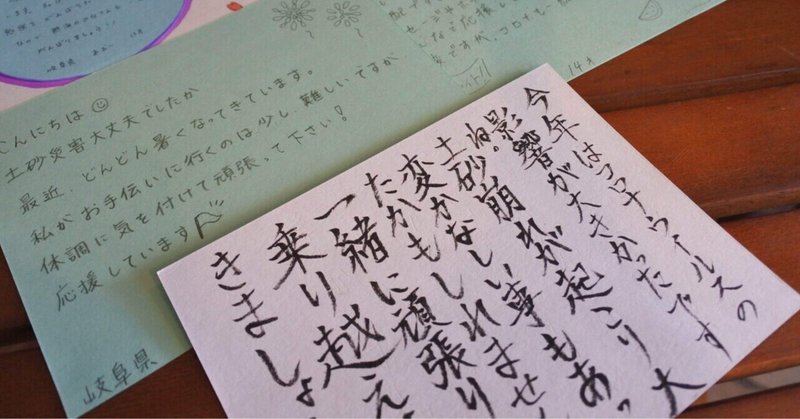 がんばりましょう！
岐阜県
なで応援し
ですが、コロナも一
14才
こんにちは
土砂災害大丈夫でしたか
最近、どんどん暑くなってきています。
私がお手伝いに行くのは少し難しいですが
体調に気を付けて頑張って下さい！
応援しています
岐阜県
今年はコロナウィルスの
影響が大きかったです
ね。
土砂崩れが起こり大
変かなしい事もあっ
たかもしれませ
一緒に頑張り
乗り越え
きましょ